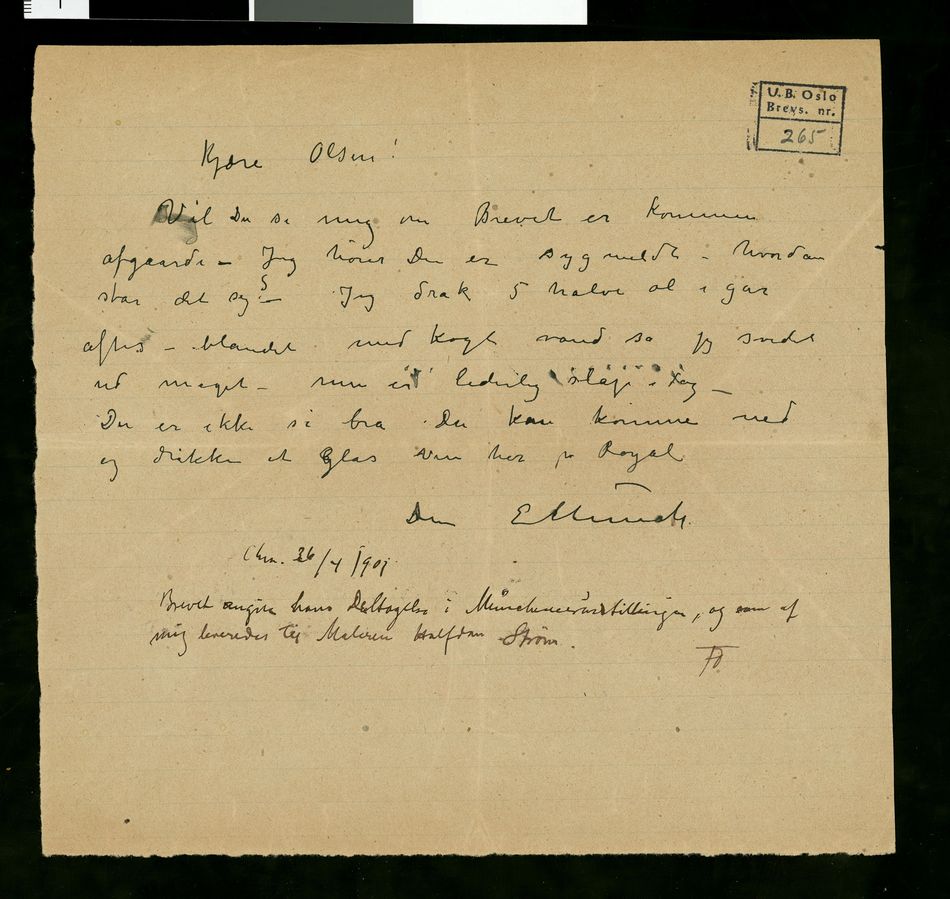 U.B. Oslo
Brevs. nr.
265
Kjære Olsen!
Vil Du si mig om Brevet er kommen
afgaarde – Jeg hører Du er sygmeldt – hvordan
står det sig? – Jeg drak 5 halve øl i går
aftes – blandet med kogt vand så jeg svedet
ud meget – men er lederlig sløj i dag –
Du er ikke så bra Du kan komme ned
og drikke et Glas vin her på Royal
Din E Munch
Chra. 26/4 1901
Brevet angik hans Deltagelse i Münchenerudstillingen, og som af
mig leveredes til Maleren Halfdan Strøm.